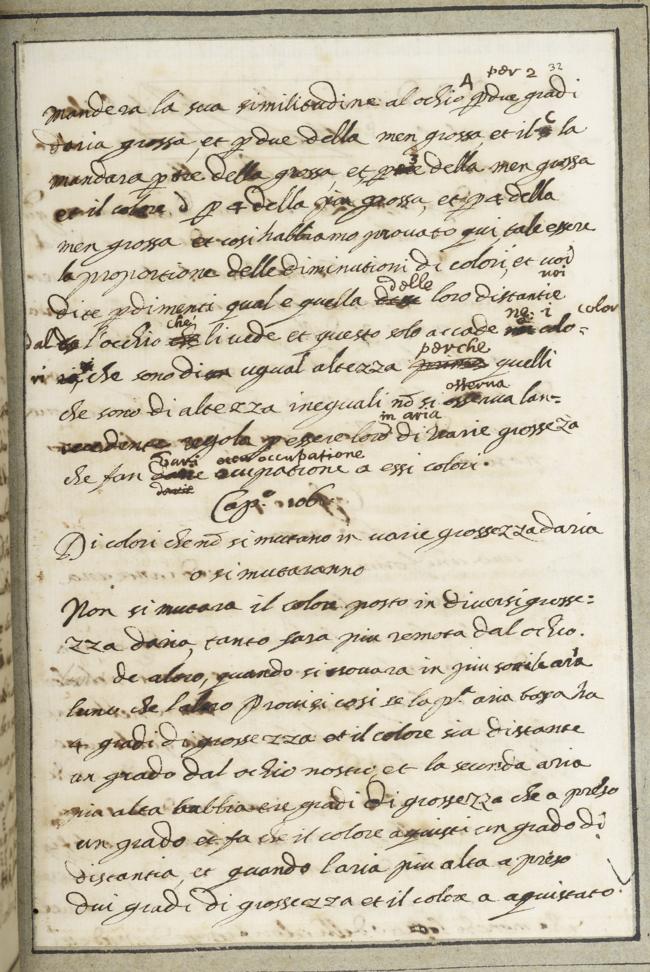 per 2 32
mandera la sua similitudine al ochio A p due gradi
daria grossa, et p due della men grossa et il c la
mandara p tre della grossa, et p 3 della men grossa
et il colore d p 4 della piu grossa, et p 4 della
men grossa et cosi habbiamo provato qui tale essere
la proportione delle diminutioni di colori, et voi
delle noi
dite p dimenti qual e quella loro distantie
dal l'occhio che li vede et questo solo accade ne i color
colo=
ri che sono di ugual altezza perche quelli
che sono di altezza inequali nō si osserva lan=
osserva
in aria
tecedente regola p essere loro di varie grosseza
che fan occupatione a essi colori.
varia occupatione
Cap.º 106.
Di colori che nō si mutano in varie grossezza daria
o si mutaranno
Non si mutara il colore posto in diversi grosse=
zza daria, tanto sara piu remota dal ochio.
de altro, quando si trovara in piu sottile aria
luno che laltro Provisi cosi se la p.ª aria bassa ha
4 gradi di grossezza et il colore sia distante
un grado dal ochio nostro, et la seconda aria
piu alta habbia tre gradi di grossezza che a preso
un grado et fa che il colore aquisti un grado di
distantia, et quando laria piu alta a preso
dui gradi di grossezza et il colore a aquistato